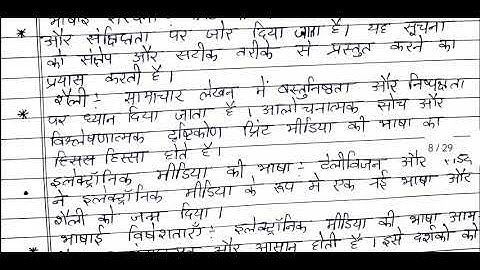 भाषाई संरचना :-
* और संक्षिप्तता पर जोर दिया जाता है। यह सूचना
को संक्षेप और सटीक तरीके से प्रस्तुत करने का
प्रयास करती है।
* शैली :- सामाचार लेखन में वस्तुनिष्ठता और निष्पक्षता
पर ध्यान दिया जाता है। आलोचनात्मक सोच और
विश्लेषणात्मक दृष्टिकोण प्रिंट मीडिया की भाषा का
हिसस हिस्सा होते है।
8/29
इलेक्ट्रॉनिक मीडिया की भाषा :- टेलीविजन और
ने इलेक्ट्रॉनिक मीडिया के रूप मे एक नई भाषा और
शैली को जन्म दिया।
* भाषाई विषेशताएँ :- इलेक्ट्रॉनिक मीडिया की भाषा आम
और आसान होती है। इसे दर्शको को